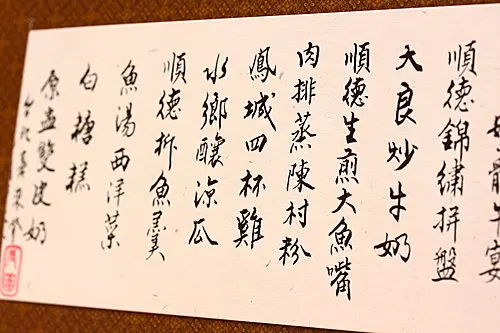 午宴
順德錦繡拼盤
大良炒牛奶
順德生煎大魚嘴
肉排蒸陳村粉
鳳城四杯雞
水鄉釀涼瓜
順德拆魚羹
魚湯西洋菜
白糖糕
原盅雙皮奶
台北